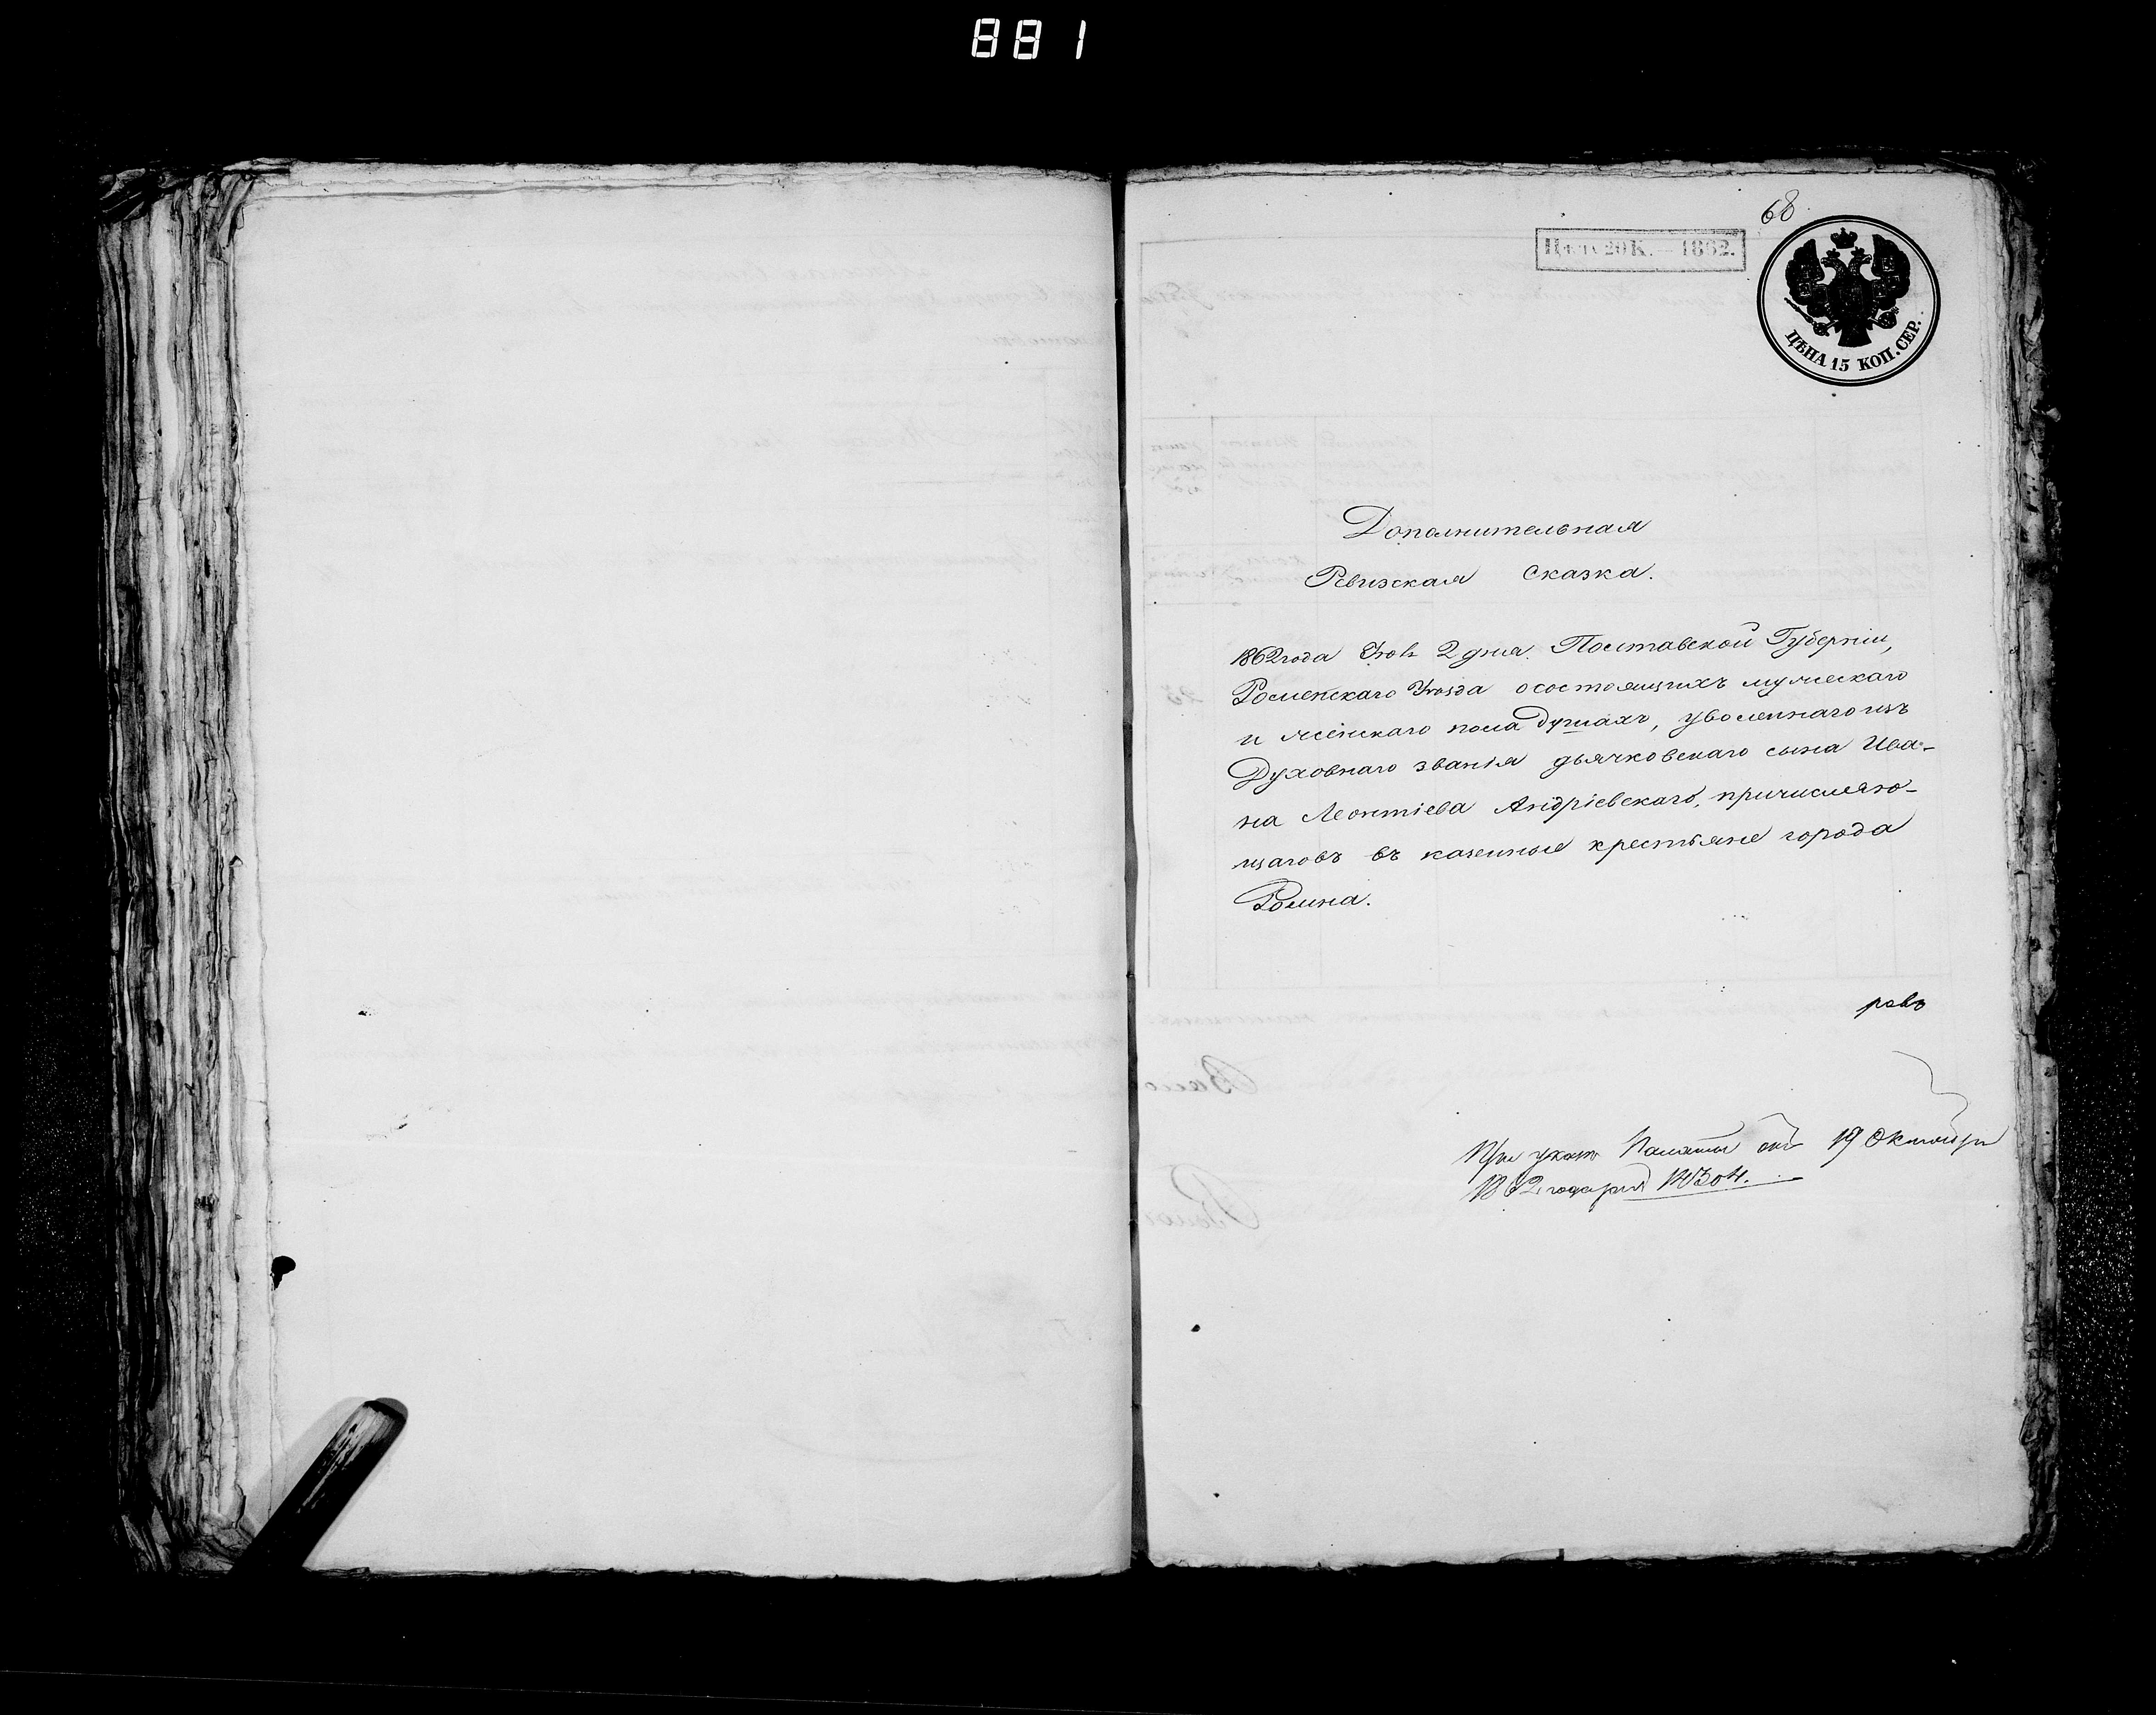 881
68
Цѣна 20 К. — 1862.
ЦѢНА 15 КОП. СЕР.
Дополнительная
Ревизская Сказка.
1862 года 2 дня. Полтавской Губерніи,
Роменскаго Уѣзда о состоящихъ мужескаго
и женскаго пола душахъ, уволеннаго изъ
Духовнаго званія дьячковскаго сына Ива-
на Леонтіева Андріевскаго, причисляю-
щагося въ казенные крестьяне города
Ромна.
ревъ
При указѣ Палаты отъ 19 Октября
1862 года